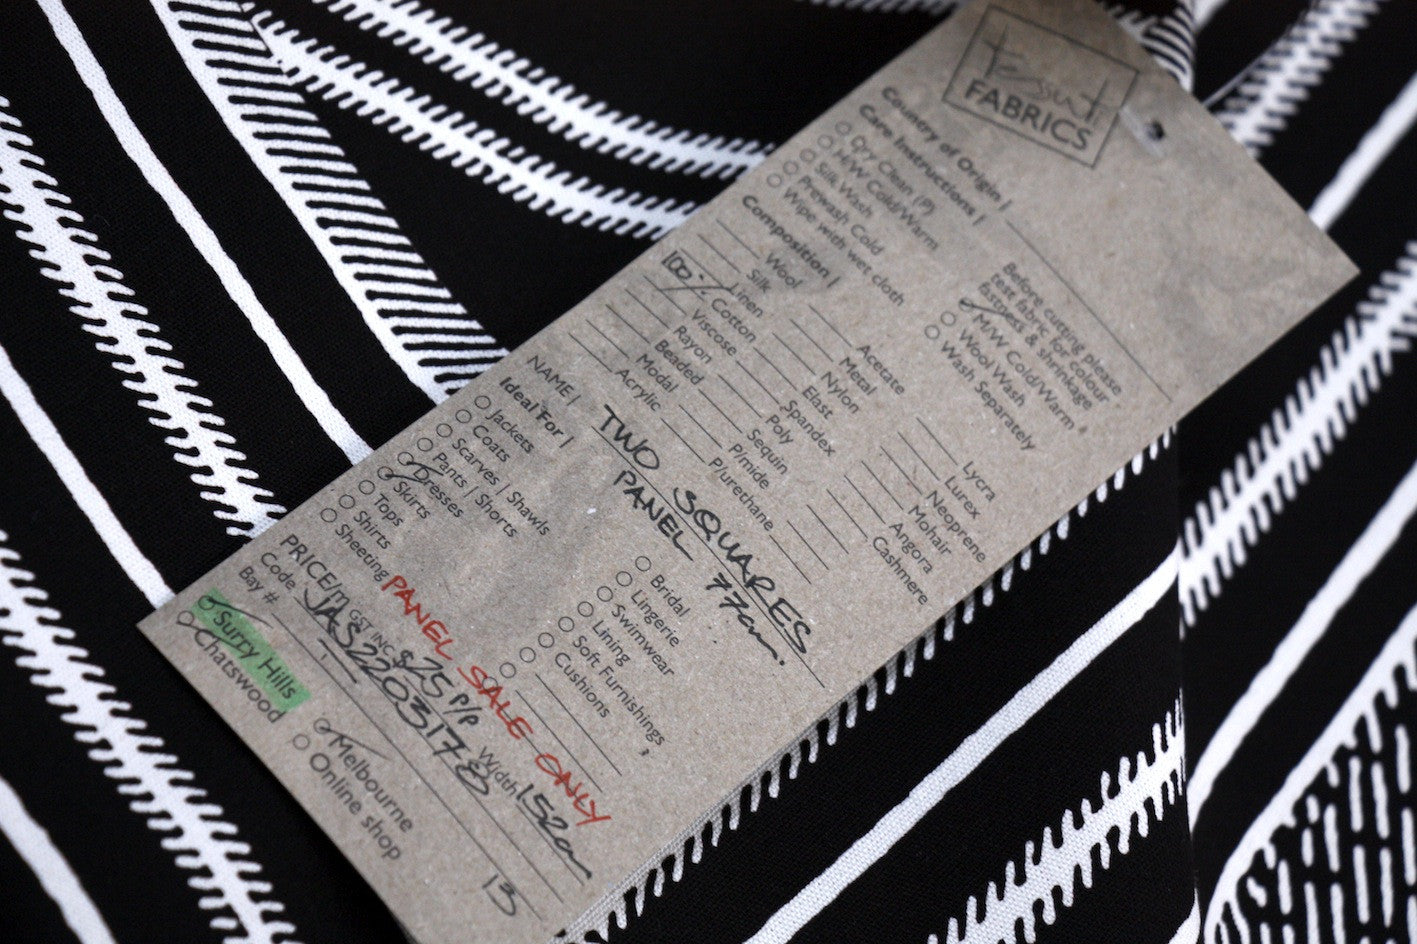 Tessuti
FABRICS
Country of Origin |
Care Instructions |
Dry Clean (P)
H/W Cold/Warm
Silk Wash
Prewash Cold
Wipe with wet cloth
Before cutting please
test fabric for colour
fastness & shrinkage
M/W Cold/Warm
Wool Wash
Wash Separately
Composition |
Wool
Silk
Linen
100% Cotton
Viscose
Rayon
Beaded
Modal
Acrylic
Acetate
Metal
Nylon
Elast
Spandex
Poly
Sequin
P/mide
P/urethane
Lycra
Lurex
Neoprene
Mohair
Angora
Cashmere
NAME | TWO SQUARES
PANEL 77cm.
Ideal For |
Jackets
Coats
Scarves | Shawls
Pants | Shorts
Dresses
Skirts
Tops
Shirts
Sheeting
Bridal
Lingerie
Swimwear
Lining
Soft Furnishings
Cushions
PANEL SALE ONLY
PRICE/m GST INC $25 P/P Width 152cm
Code JAS2203178
Bay # 13
Surry Hills
Chatswood
Melbourne
Online shop